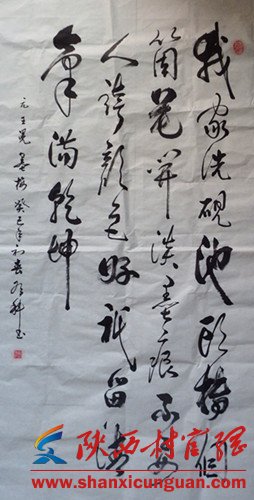 我家洗硯池頭樹個
箇花開淡墨痕不要
人誇顏色好祇留清
氣滿乾坤
元王冕墨梅癸巳年初春
陕西村官网
www.shanxicunguan.com